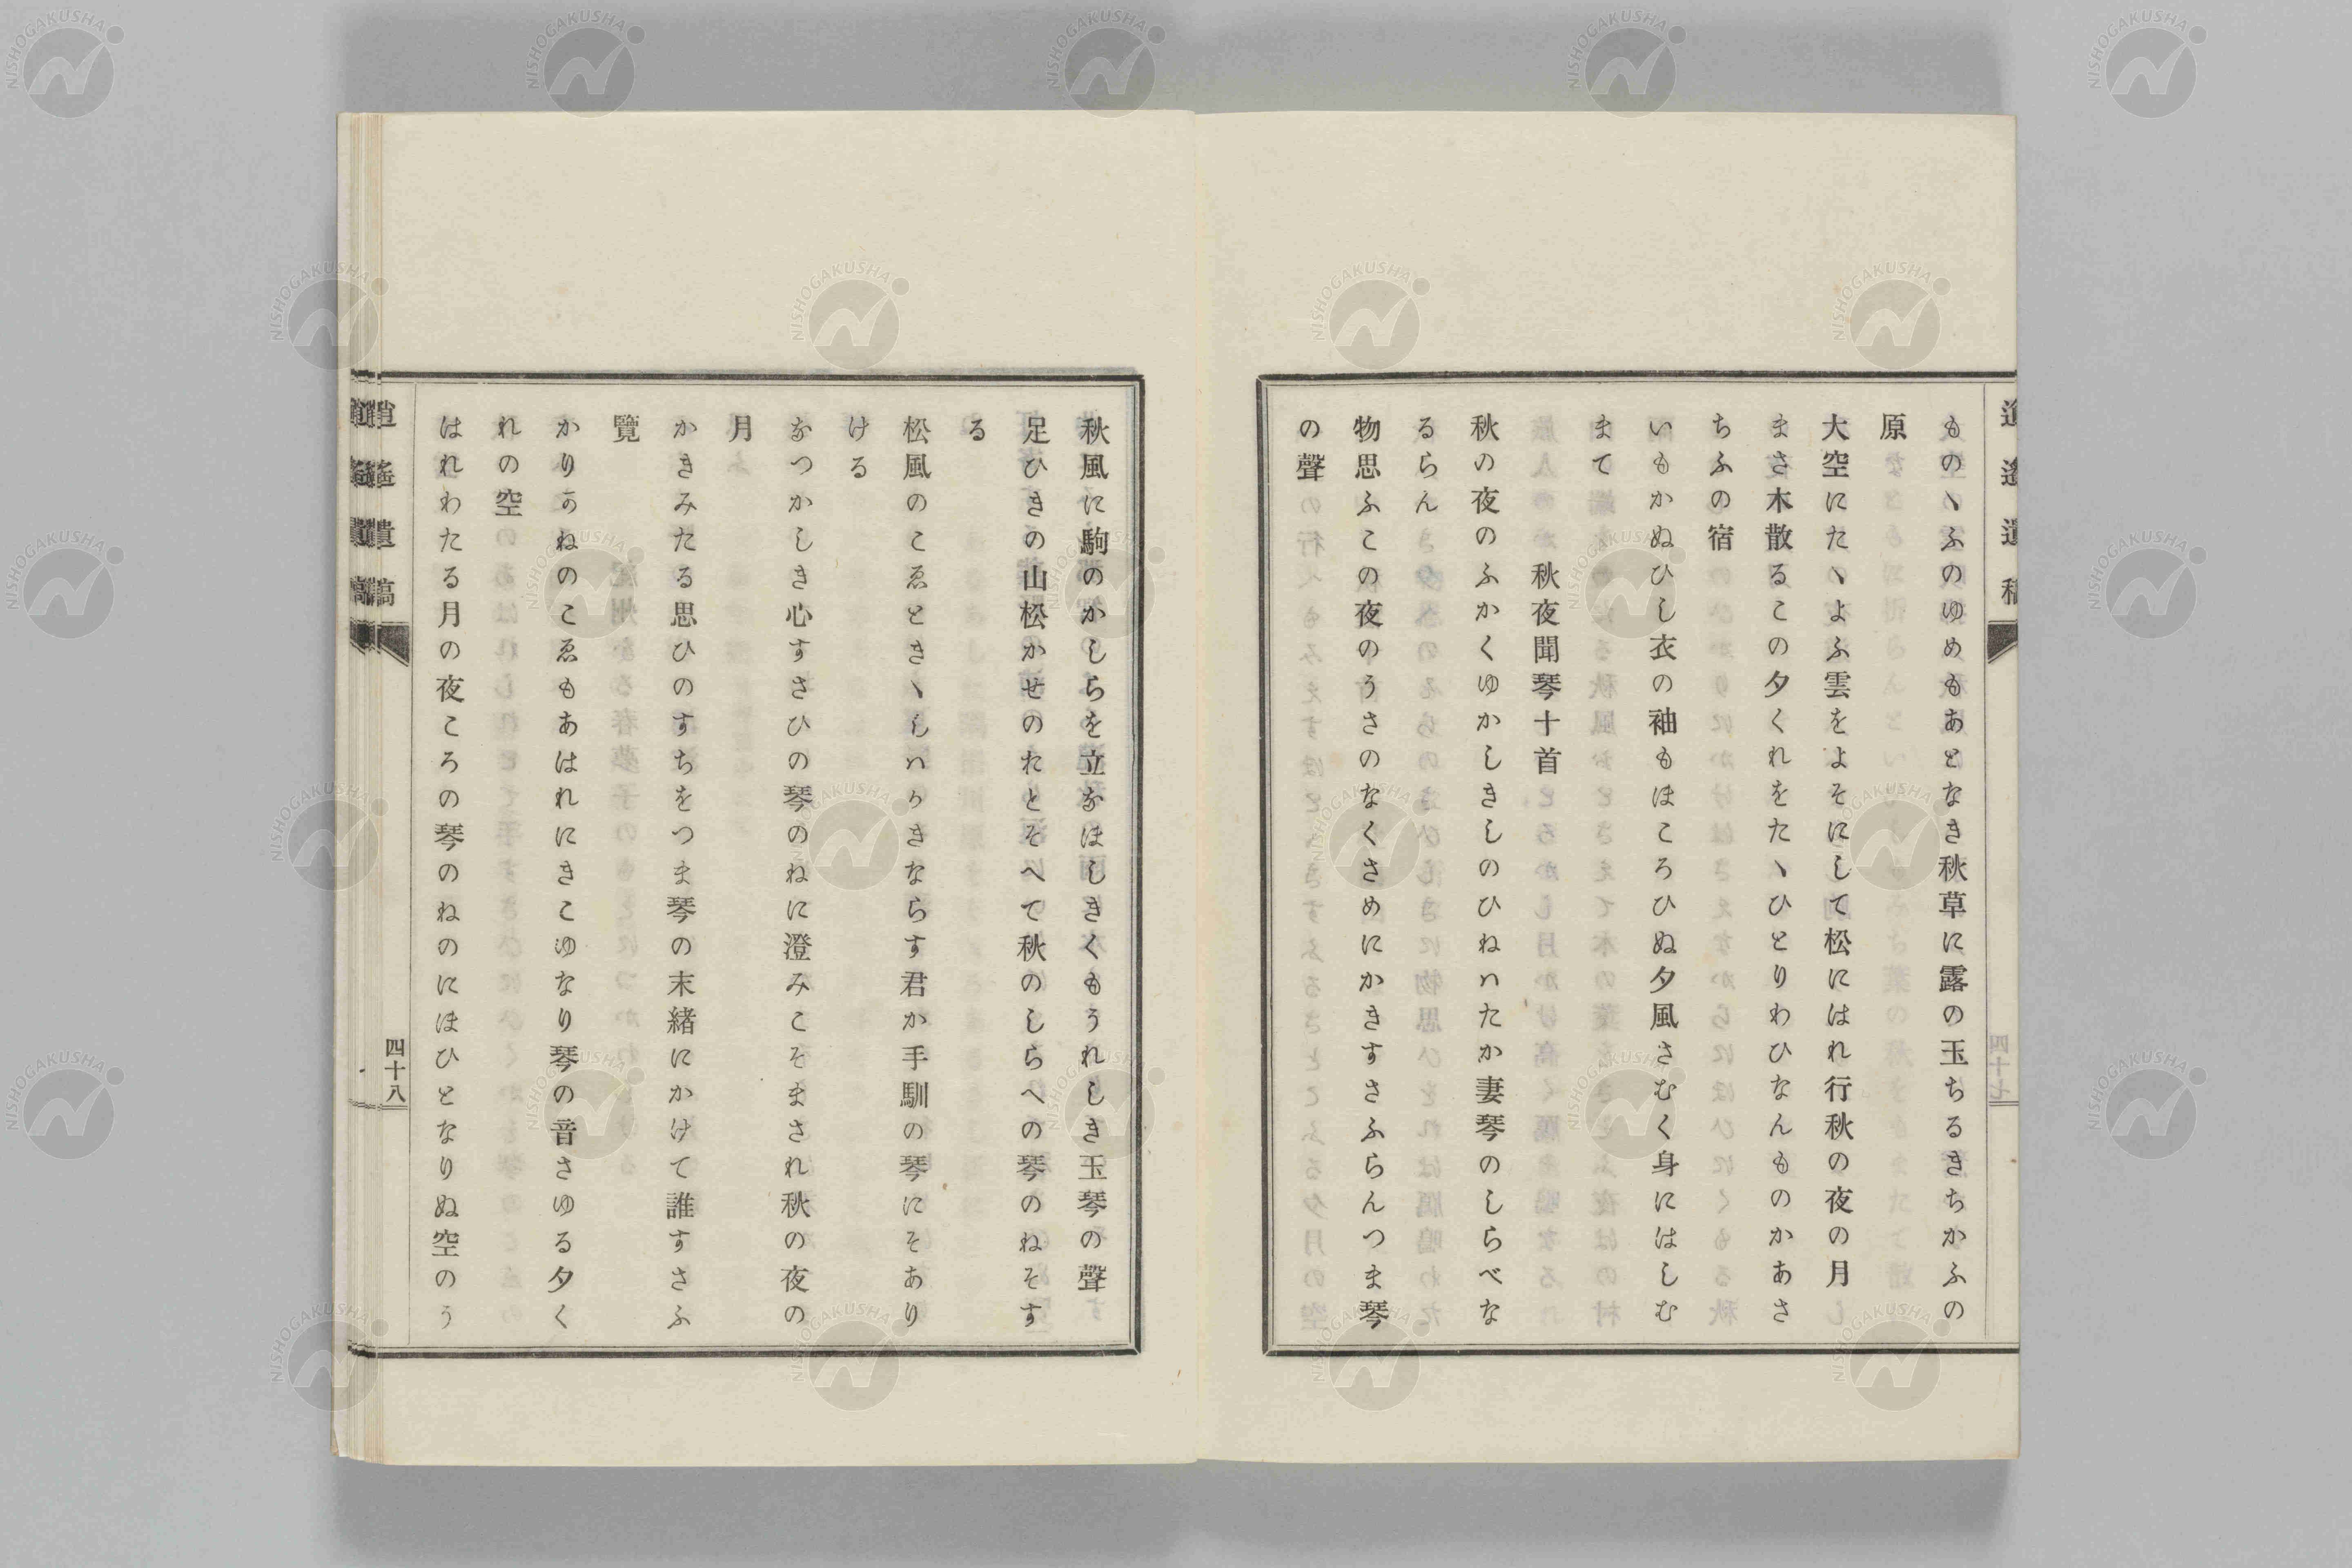 ものゝふのゆめもあとなき秋草に露の玉ちるきちかふの
原
大空にたゝよふ雲をよそにして松にはれ行秋の夜の月
まさ木散るこの夕くれをたゝひとりわひなんものかあさ
ちふの宿
いもかぬひし衣の袖もほころひぬ夕風さむく身にはしむ
まて
秋夜聞琴十首
秋の夜のふかくゆかしきしのひねハたか妻琴のしらべな
るらん
物思ふこの夜のうさのなくさめにかきすさふらんつま琴
の聲
秋風に駒のかしらを立なほしきくもうれしき玉琴の聲
足ひきの山松かせのれとそへて秋のしらへの琴のねそす
る
松風のこゑときゝしハかきならす君か手馴の琴にそあり
ける
なつかしき心すさひの琴のねに澄みこそまされ秋の夜の
月
かきみたる思ひのすちをつま琴の末緒にかけて誰すさふ
覽
かりかねのこゑもあはれにきこゆなり琴の音さゆる夕く
れの空
はれわたる月の夜ころの琴のねのにほひとなりぬ空のう
逍遙遺稿
四十八
NISHOGAKUSHA